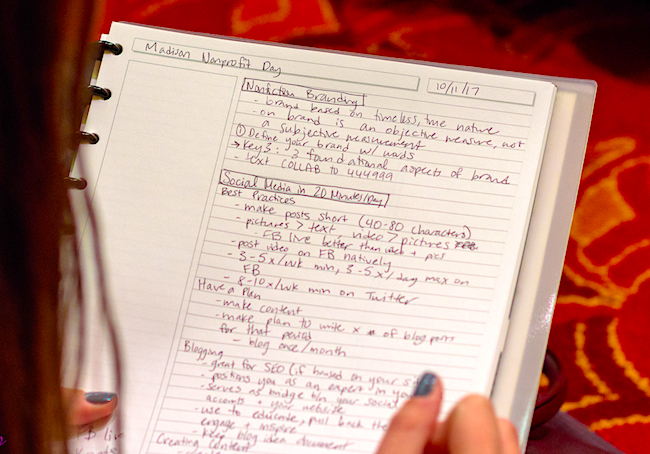 Madison Nonprofit Day
10/11/17
Nonfiction Branding
- brand based on timeless, true nature
- on brand is an objective measure, not
a subjective measurement
① Define your brand w/ words
→ Key 3: 3 foundational aspects of brand
- text COLLAB to 444999
Social Media in 20 Minutes/Day
Best Practices
- make posts short (40-80 characters)
- pictures > text, video > pictures
- FB live better than + pics
- post video on FB natively
- 3-5x/wk min, 3-5x/day max on
FB
- 8-10x/wk min on Twitter
Have a Plan
- make content
- make plan to write x # of blog posts
for that period
- blog once/month
Blogging
- great for SEO (if housed on your
- positions you as an expert in your
- serves as bridge b/n your social
accounts + your website
- use to educate, pull back the
engage + inspire
- keep blog idea document
Creating Content
FB live